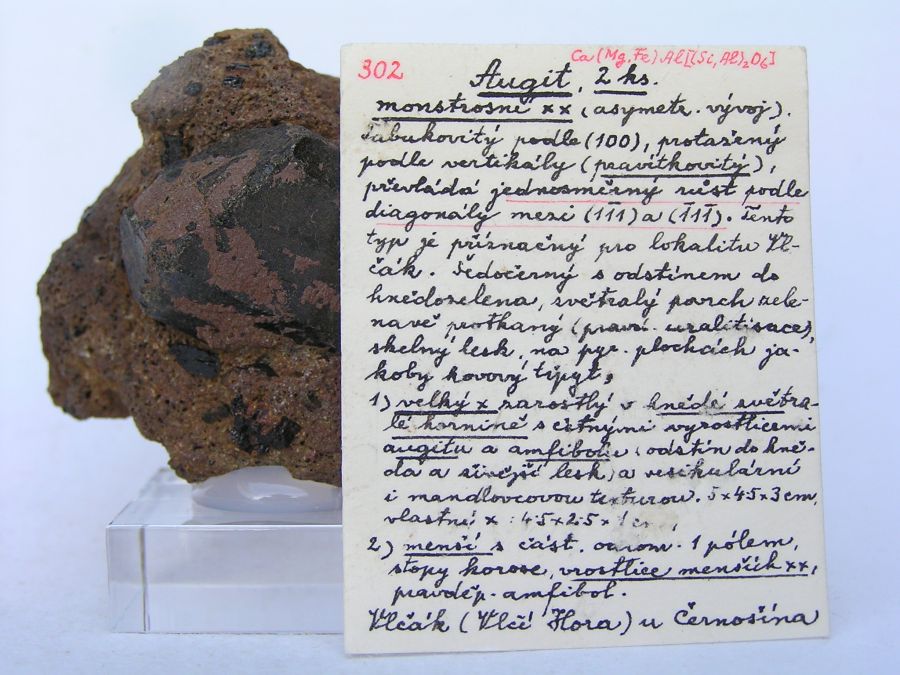 302
Ca(Mg,Fe)Al[(Si,Al)₂O₆]
Augit, 2 ks.
monstrosní xx (asymetr. vývoj).
Tabulkovitý podle (100), protažený
podle vertikály (pravítkovitý),
převládá jednosměrný růst podle
diagonály mezi (111) a (1̄11̄). Tento
typ je příznačný pro lokalitu Vl-
čák. Šedočerný s odstínem do
hnědozelena, světralý povrch zele-
navě protkaný (pravd. uralitisace),
skelný lesk, na pyr. plochách ja-
koby kovový třpyt,
1) velký x zarostlý v hnědé světra-
lé hornině s četnými vyrostlicemi
augitu a amfibolu (odstín do hně-
da a živější lesk) a vesikulární
i mandlovcovou texturou. 5x4.5x3 cm,
vlastní x : 4.5x2.5x1 cm,
2) menší s část. 1 pólem,
stopy korose, vrostlice menších xx,
pravděp. amfibol.
Vlčák (Vlčí Hora) u Černošína